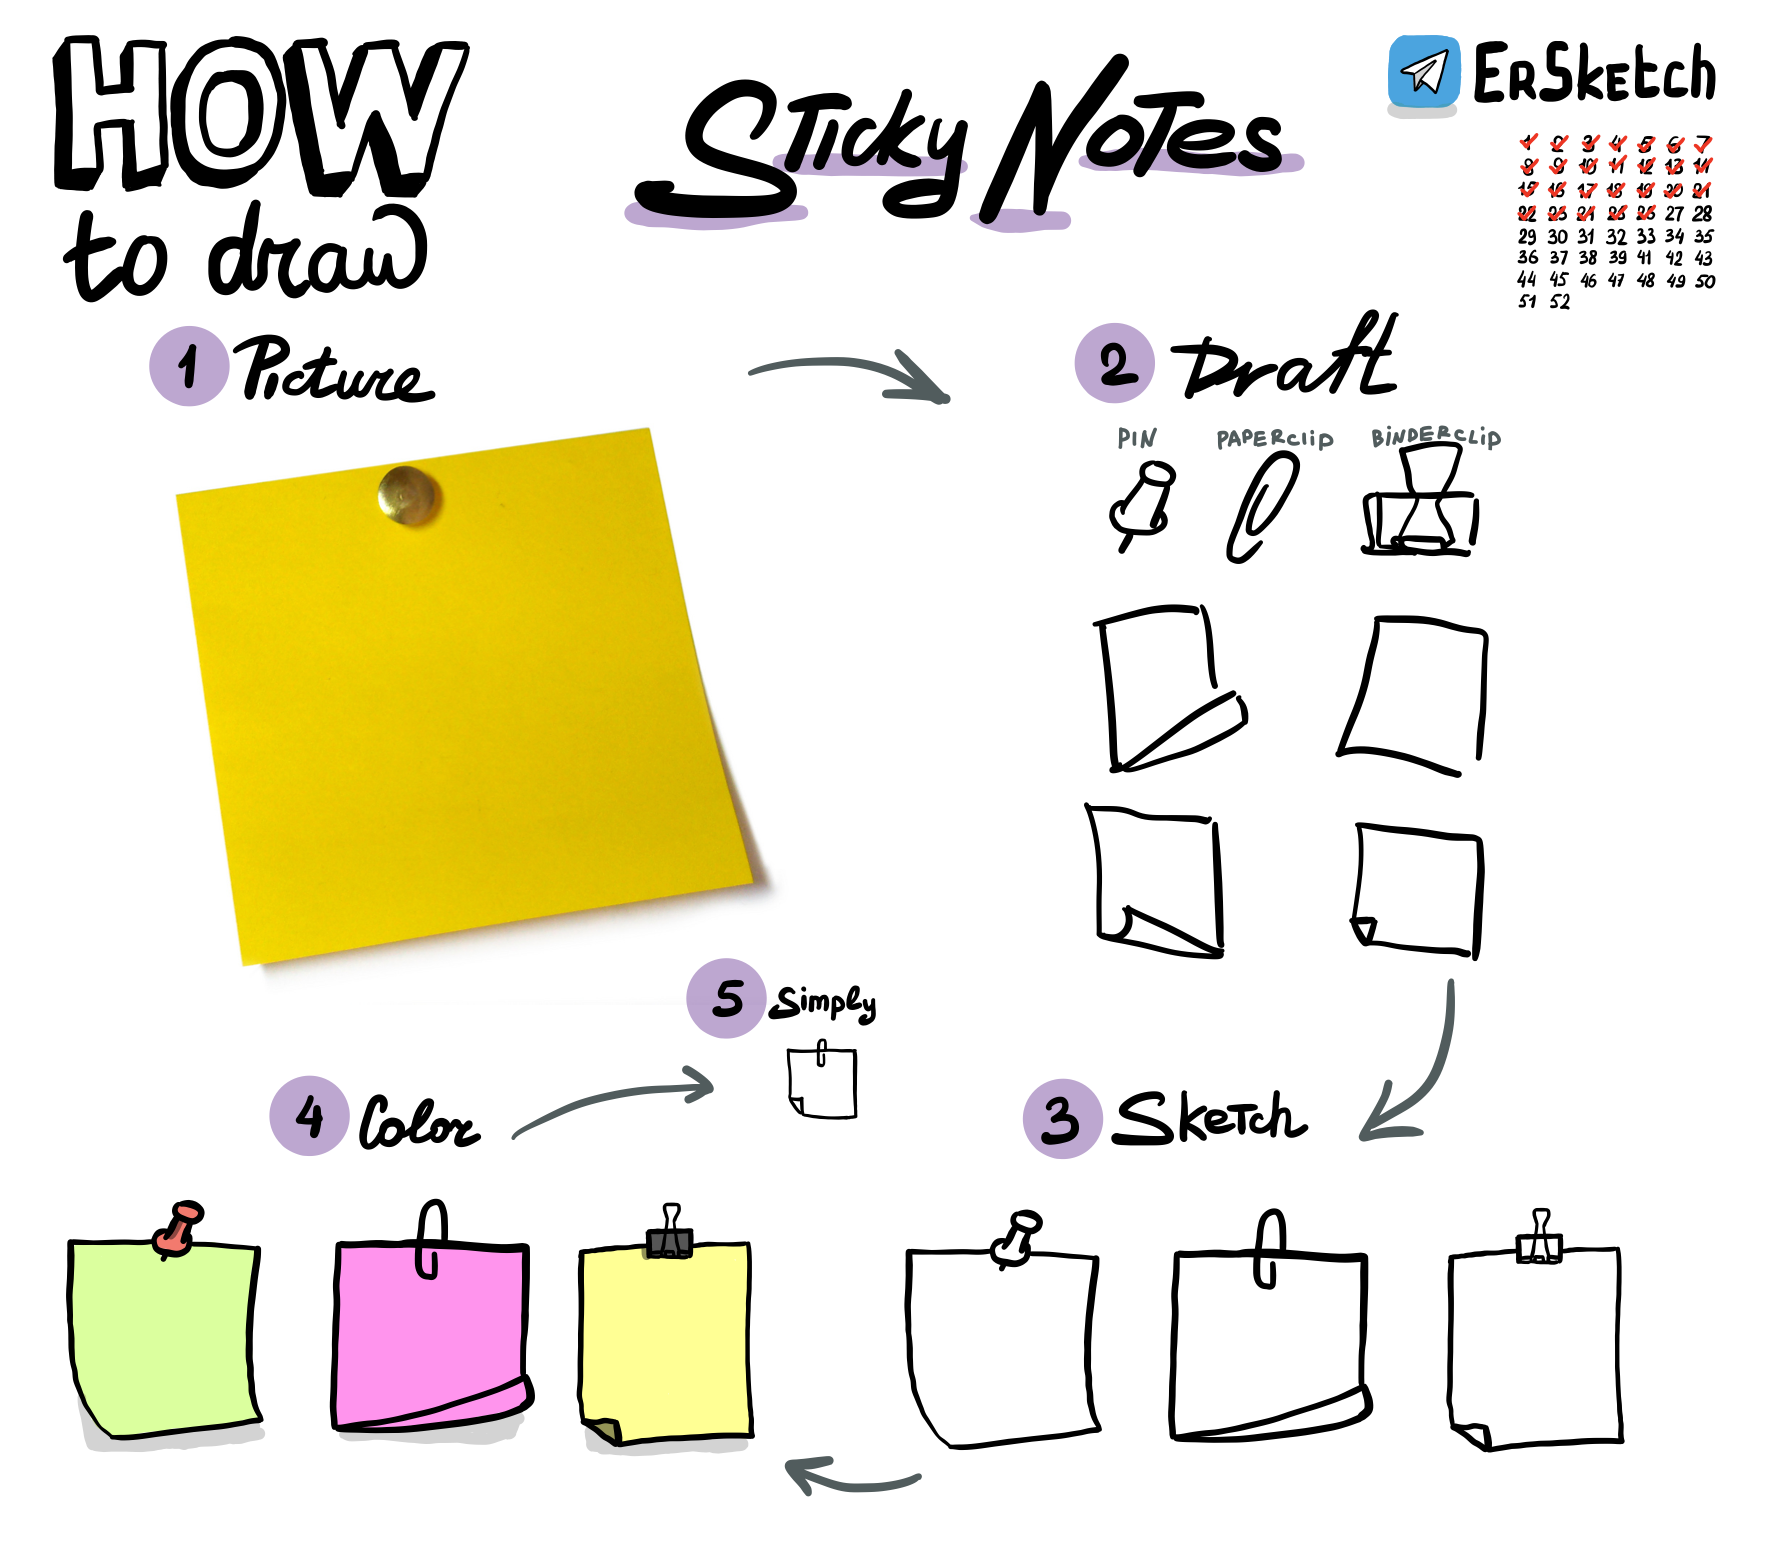 HOW
to draw
Sticky Notes
ErSketch
1 2 3 4 5 6 7
8 9 10 11 12 13 14
15 16 17 18 19 20 21
22 23 24 25 26 27 28
29 30 31 32 33 34 35
36 37 38 39 41 42 43
44 45 46 47 48 49 50
51 52
1 Picture
2 Draft
PIN PAPERclip BINDERclip
5 Simply
4 Color
3 Sketch